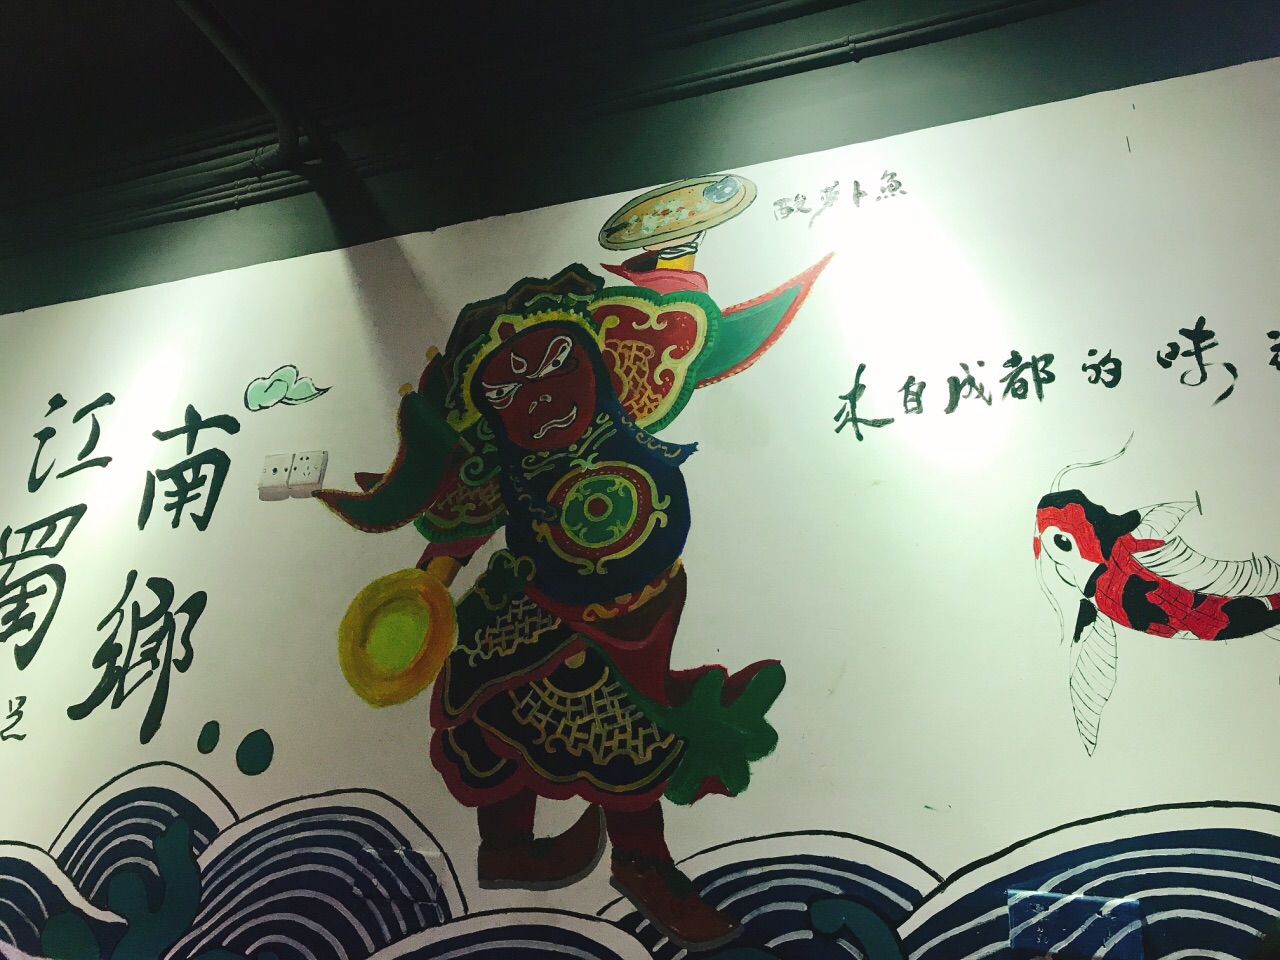 酸萝卜魚
来自成都的味
江南
蜀鄉